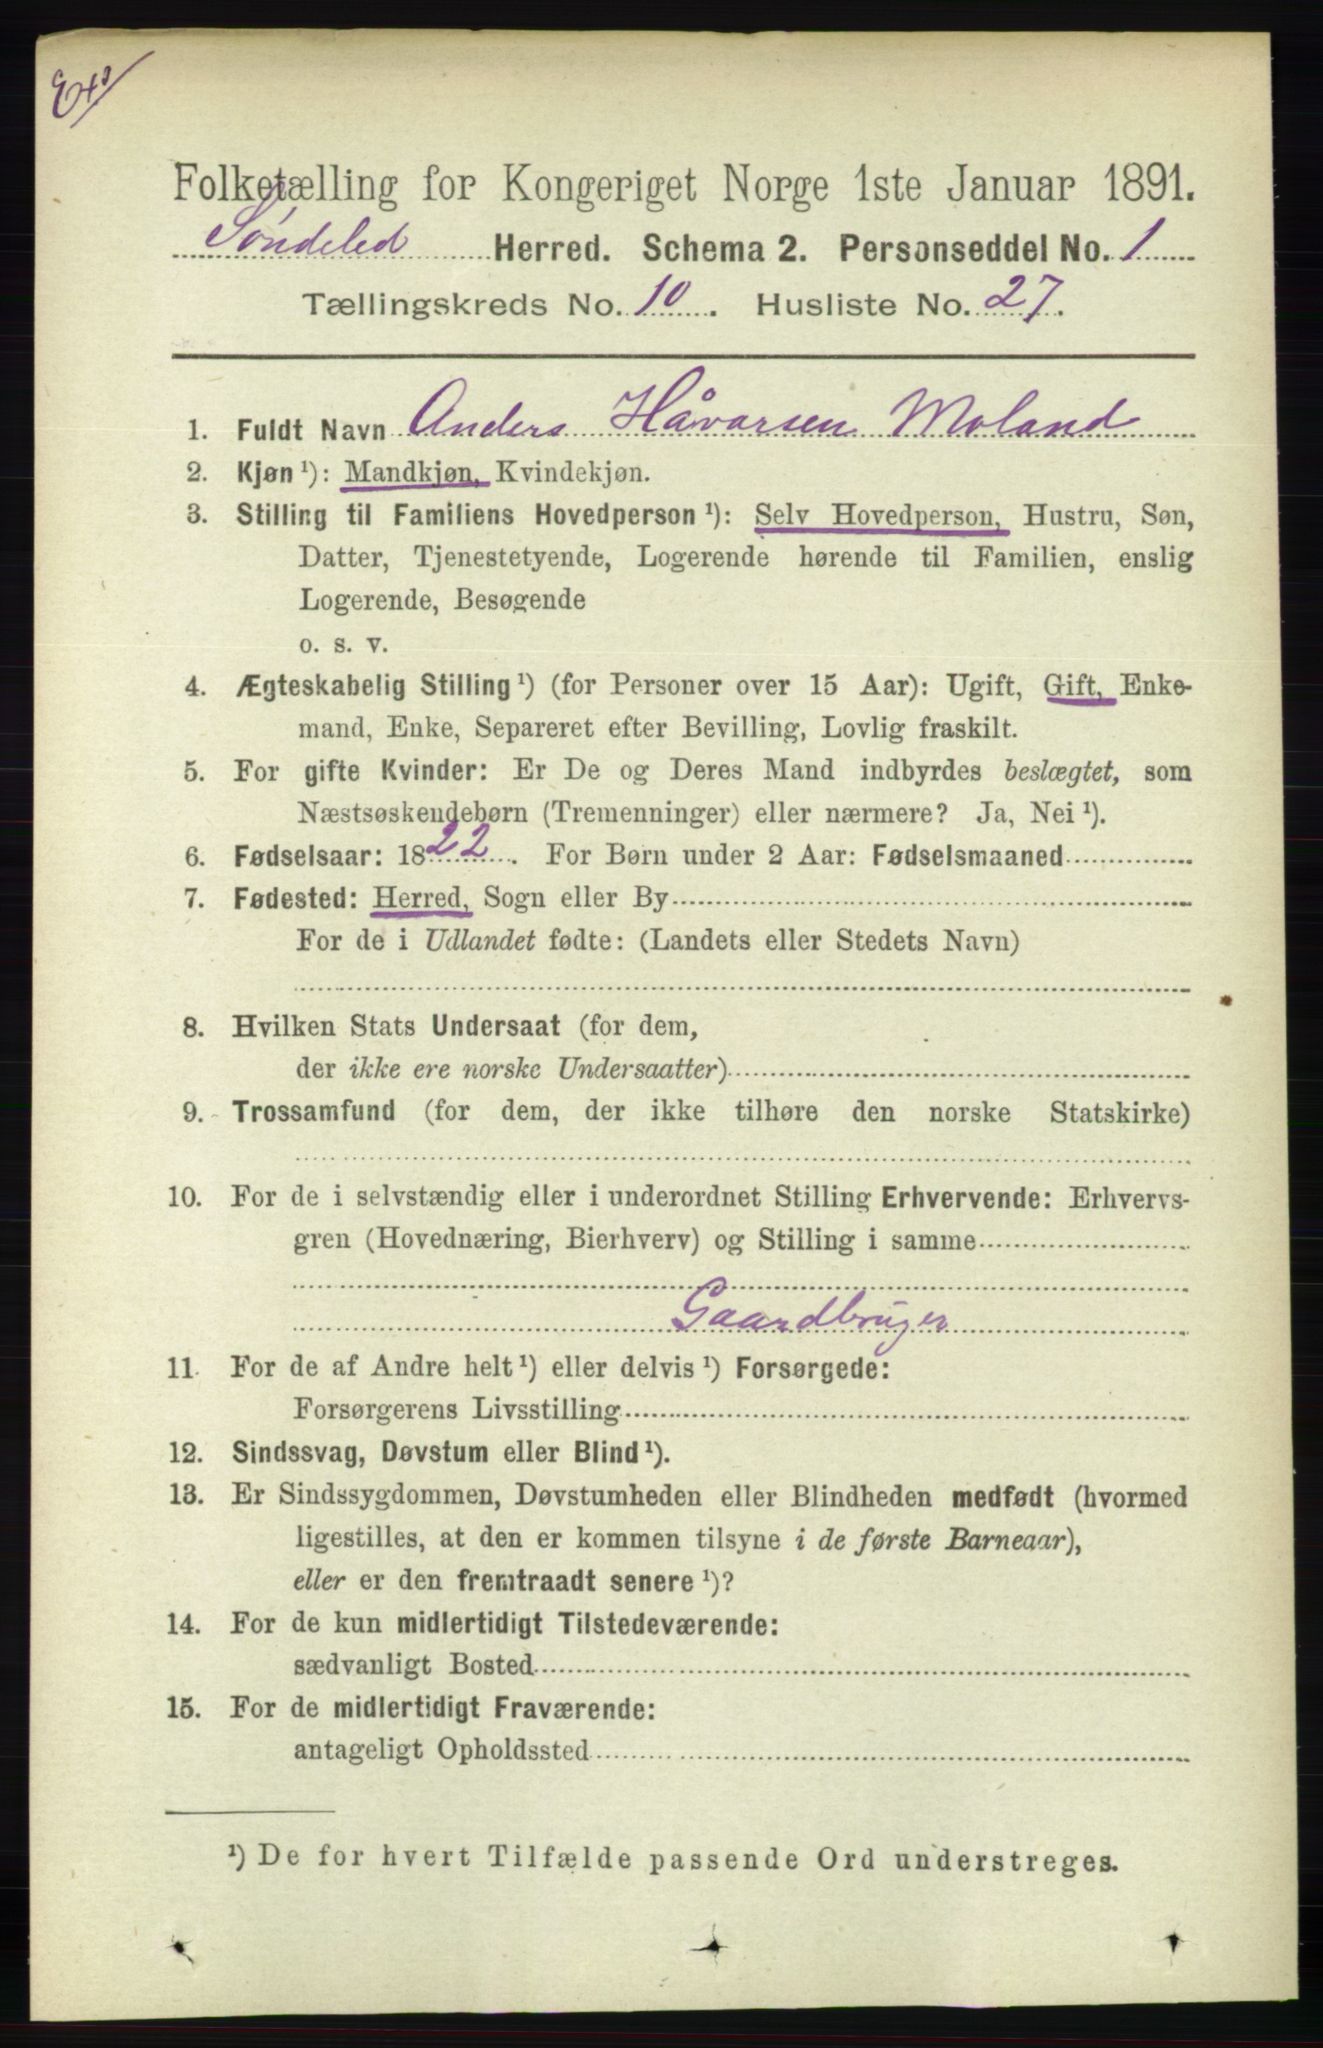 Folketælling for Kongeriget Norge 1ste Januar 1891.
Søndeled Herred. Schema 2. Personseddel No. 1
Tællingskreds No. 10. Husliste No. 27.
1. Fuldt Navn Anders Håvarsen Moland
2. Kjøn ¹): Mandkjøn, Kvindekjøn.
3. Stilling til Familiens Hovedperson ¹): Selv Hovedperson, Hustru, Søn,
Datter, Tjenestetyende, Logerende hørende til Familien, enslig
Logerende, Besøgende
o. s. v.
4. Ægteskabelig Stilling ¹) (for Personer over 15 Aar): Ugift, Gift, Enke-
mand, Enke, Separeret efter Bevilling, Lovlig fraskilt.
5. For gifte Kvinder: Er De og Deres Mand indbyrdes beslægtet, som
Næstsøskendebørn (Tremenninger) eller nærmere? Ja, Nei ¹).
6. Fødselsaar: 1822. For Børn under 2 Aar: Fødselsmaaned
7. Fødested: Herred, Sogn eller By
For de i Udlandet fødte: (Landets eller Stedets Navn)
8. Hvilken Stats Undersaat (for dem,
der ikke ere norske Undersaatter)
9. Trossamfund (for dem, der ikke tilhøre den norske Statskirke)
10. For de i selvstændig eller i underordnet Stilling Erhvervende: Erhvervs-
gren (Hovednæring, Bierhverv) og Stilling i samme
Gaardbruger
11. For de af Andre helt ¹) eller delvis ¹) Forsørgede:
Forsørgerens Livsstilling
12. Sindssvag, Døvstum eller Blind ¹).
13. Er Sindssygdommen, Døvstumheden eller Blindheden medfødt (hvormed
ligestilles, at den er kommen tilsyne i de første Barneaar),
eller er den fremtraadt senere ¹)?
14. For de kun midlertidigt Tilstedeværende:
sædvanligt Bosted
15. For de midlertidigt Fraværende:
antageligt Opholdssted
¹) De for hvert Tilfælde passende Ord understreges.